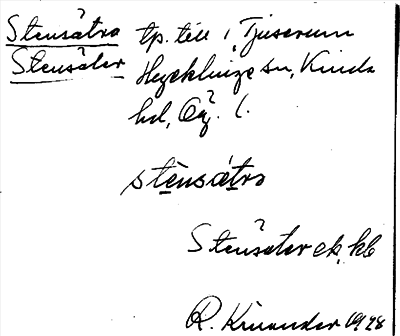 Stensätra tp. till i Tjuserum
Stensäter Hycklinge sn, Kinda
hd, Ög. l.
stènsátra
Stensäter ek. kb
R. Kinander 1928